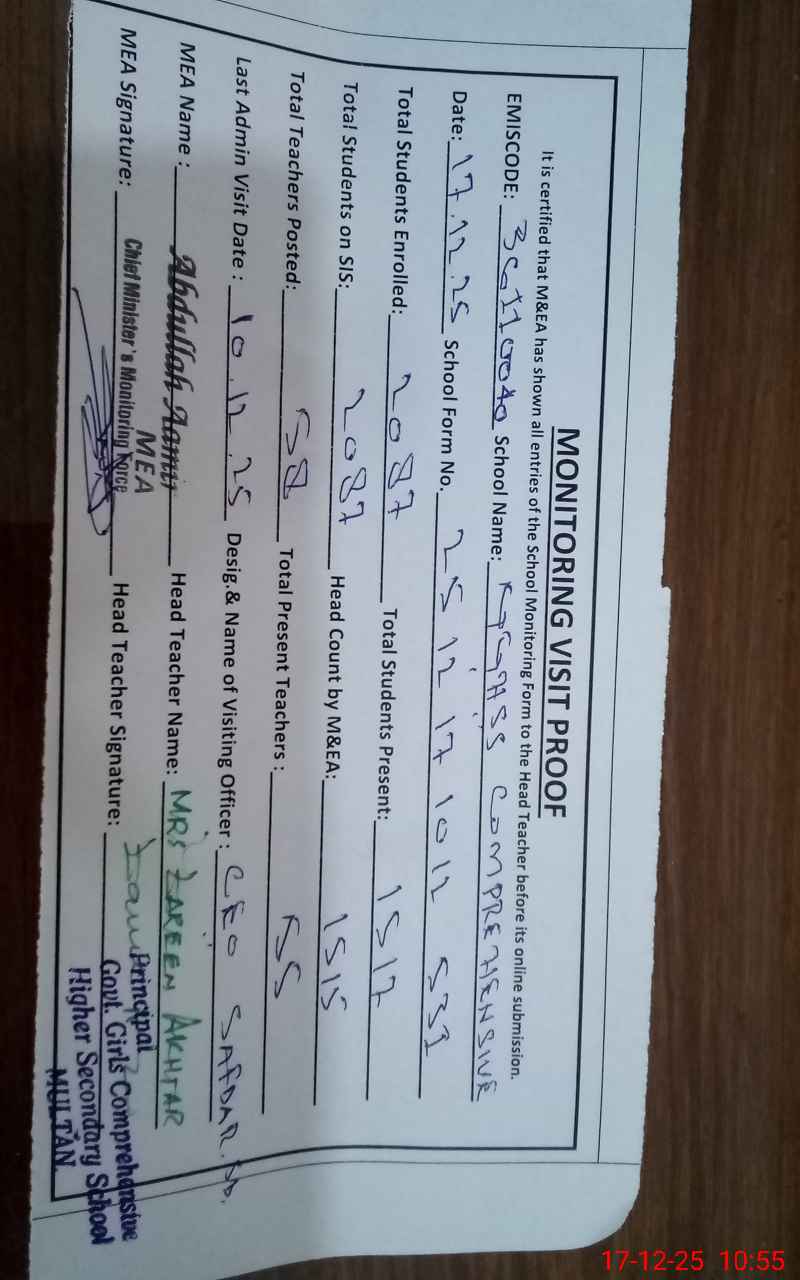 MONITORING VISIT PROOF
It is certified that M&EA has shown all entries of the School Monitoring Form to the Head Teacher before its online submission.
EMISCODE: School Name: COMPREHENSIVE
Date: 17.12.25 School Form No. 25 12 17 1012 531
Total Students Enrolled: 2087 Total Students Present: 1517
Total Students on SIS: 2087 Head Count by M&EA: 1515
Total Teachers Posted: 58 Total Present Teachers : 55
Last Admin Visit Date : 10.12.25 Desig.& Name of Visiting Officer : CEO SAFDAR.
MEA Name : Abdullah Aamir Head Teacher Name: MRS ZAREEN AKHTAR
MEA
MEA Signature: Chief Minister's Monitoring Force Head Teacher Signature:
Principal
Govt. Girls Comprehensive
Higher Secondary School
MULTAN
17-12-25 10:55